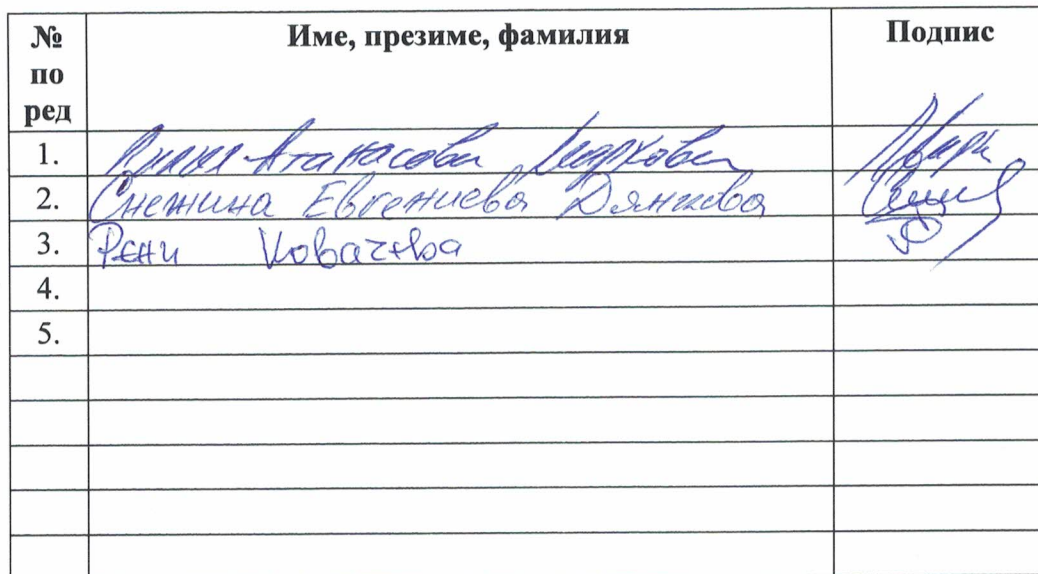 № по ред Име, презиме, фамилия Подпис
1. Атанасова Маркова
2. Снежина Евгениева Дянкова
3. Рени Ковачева
4.
5.